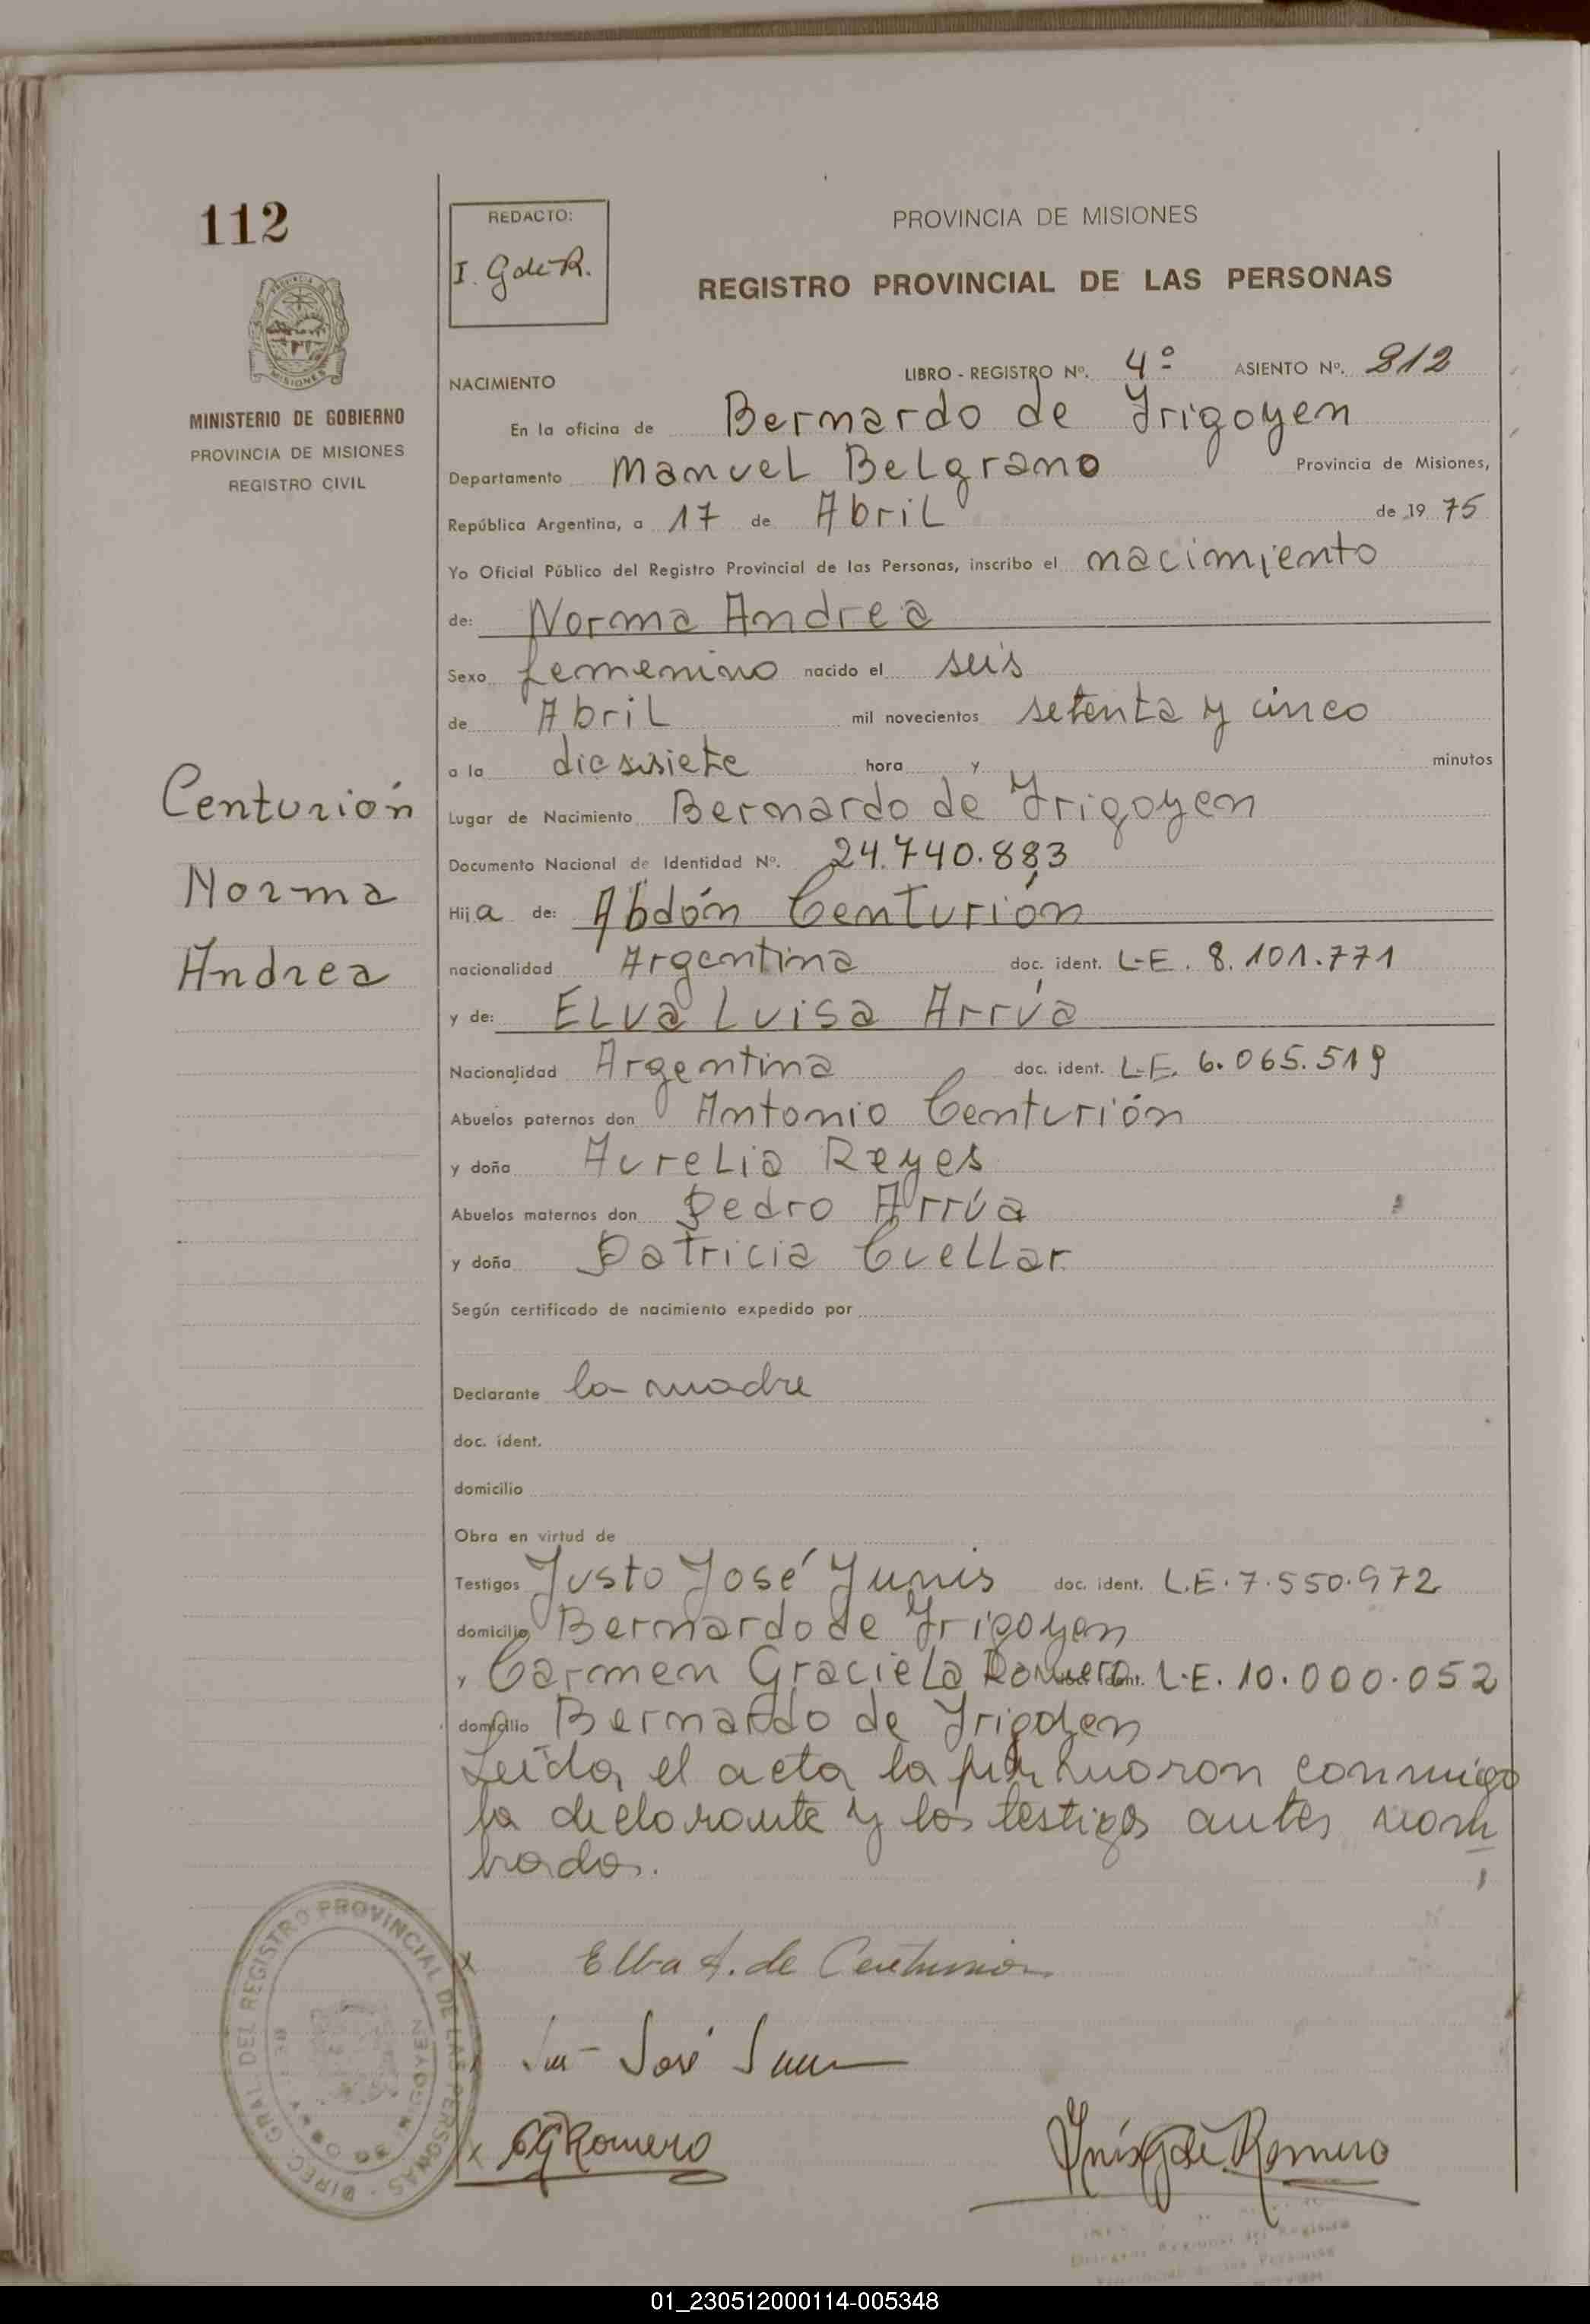 112
REDACTO:
I. G de R.
PROVINCIA DE MISIONES
REGISTRO PROVINCIAL DE LAS PERSONAS
MISIONES
MINISTERIO DE GOBIERNO
PROVINCIA DE MISIONES
REGISTRO CIVIL
NACIMIENTO LIBRO - REGISTRO Nº. 4º ASIENTO Nº. 812
En la oficina de Bernardo de Yrigoyen
Departamento Manuel Belgrano Provincia de Misiones,
República Argentina, a 17 de Abril de 19 75
Yo Oficial Público del Registro Provincial de las Personas, inscribo el nacimiento
de: Norma Andrea
Sexo femenino nacido el seis
de Abril mil novecientos setenta y cinco
a la diesisiete hora y minutos
Lugar de Nacimiento Bernardo de Yrigoyen
Documento Nacional de Identidad Nº. 24.740.883
Hija de: Abdón Centurión
nacionalidad Argentina doc. ident. L-E. 8.101.771
y de: Elva Luisa Arrúa
Nacionalidad Argentina doc. ident. L-E. 6.065.519
Abuelos paternos don Antonio Centurión
y doña Aurelia Reyes
Abuelos maternos don Pedro Arrúa
y doña Patricia Cuellar
Según certificado de nacimiento expedido por
Declarante la madre
doc. ident.
domicilio
Obra en virtud de
Testigos Justo José Yunis doc. ident. L.E. 7.550.972
domicilio Bernardo de Yrigoyen
y Carmen Graciela Romero doc. ident. L.E. 10.000.052
domicilio Bernardo de Yrigoyen
Leída el acta la firmaron conmigo
la declarante y los testigos antes nom
brados.
Centurión
Norma
Andrea
Elba A. de Centurion
José
CGRomero
Inés G de Romero
DIREC. GRAL. DEL REGISTRO PROVINCIAL DE LAS PERSONAS
01_230512000114-005348